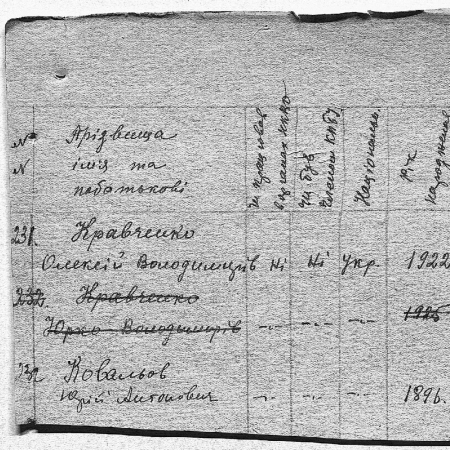 № Прізвища
№ імя та
побатькові
чи працював
в органах НКВД
чи був
членом КП(б)У
Національн.
Рік
народження
231. Кравченко
Олексій Володимирів Ні Ні укр. 1922
232. Кравченко
Юрко Володимирів -„- -„- -„- 1925
Ковальов
Юрій Антонович -„- -„- -„- 1896.